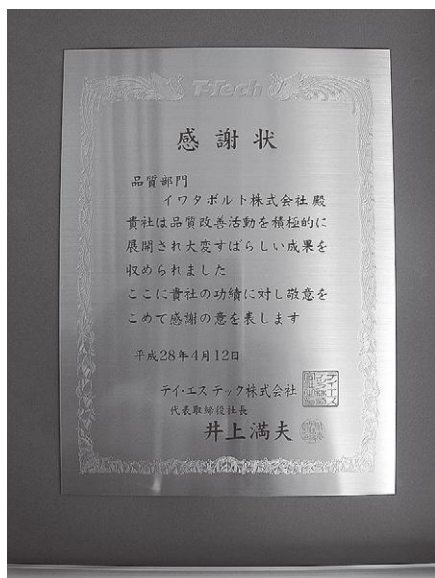 T-Tech
感謝状
品質部門
イワタボルト株式会社殿
貴社は品質改善活動を積極的に
展開され大変すばらしい成果を
収められました
ここに貴社の功績に対し敬意を
こめて感謝の意を表します
平成28年4月12日
テイ・エス テック株式会社
代表取締役社長
井上満夫